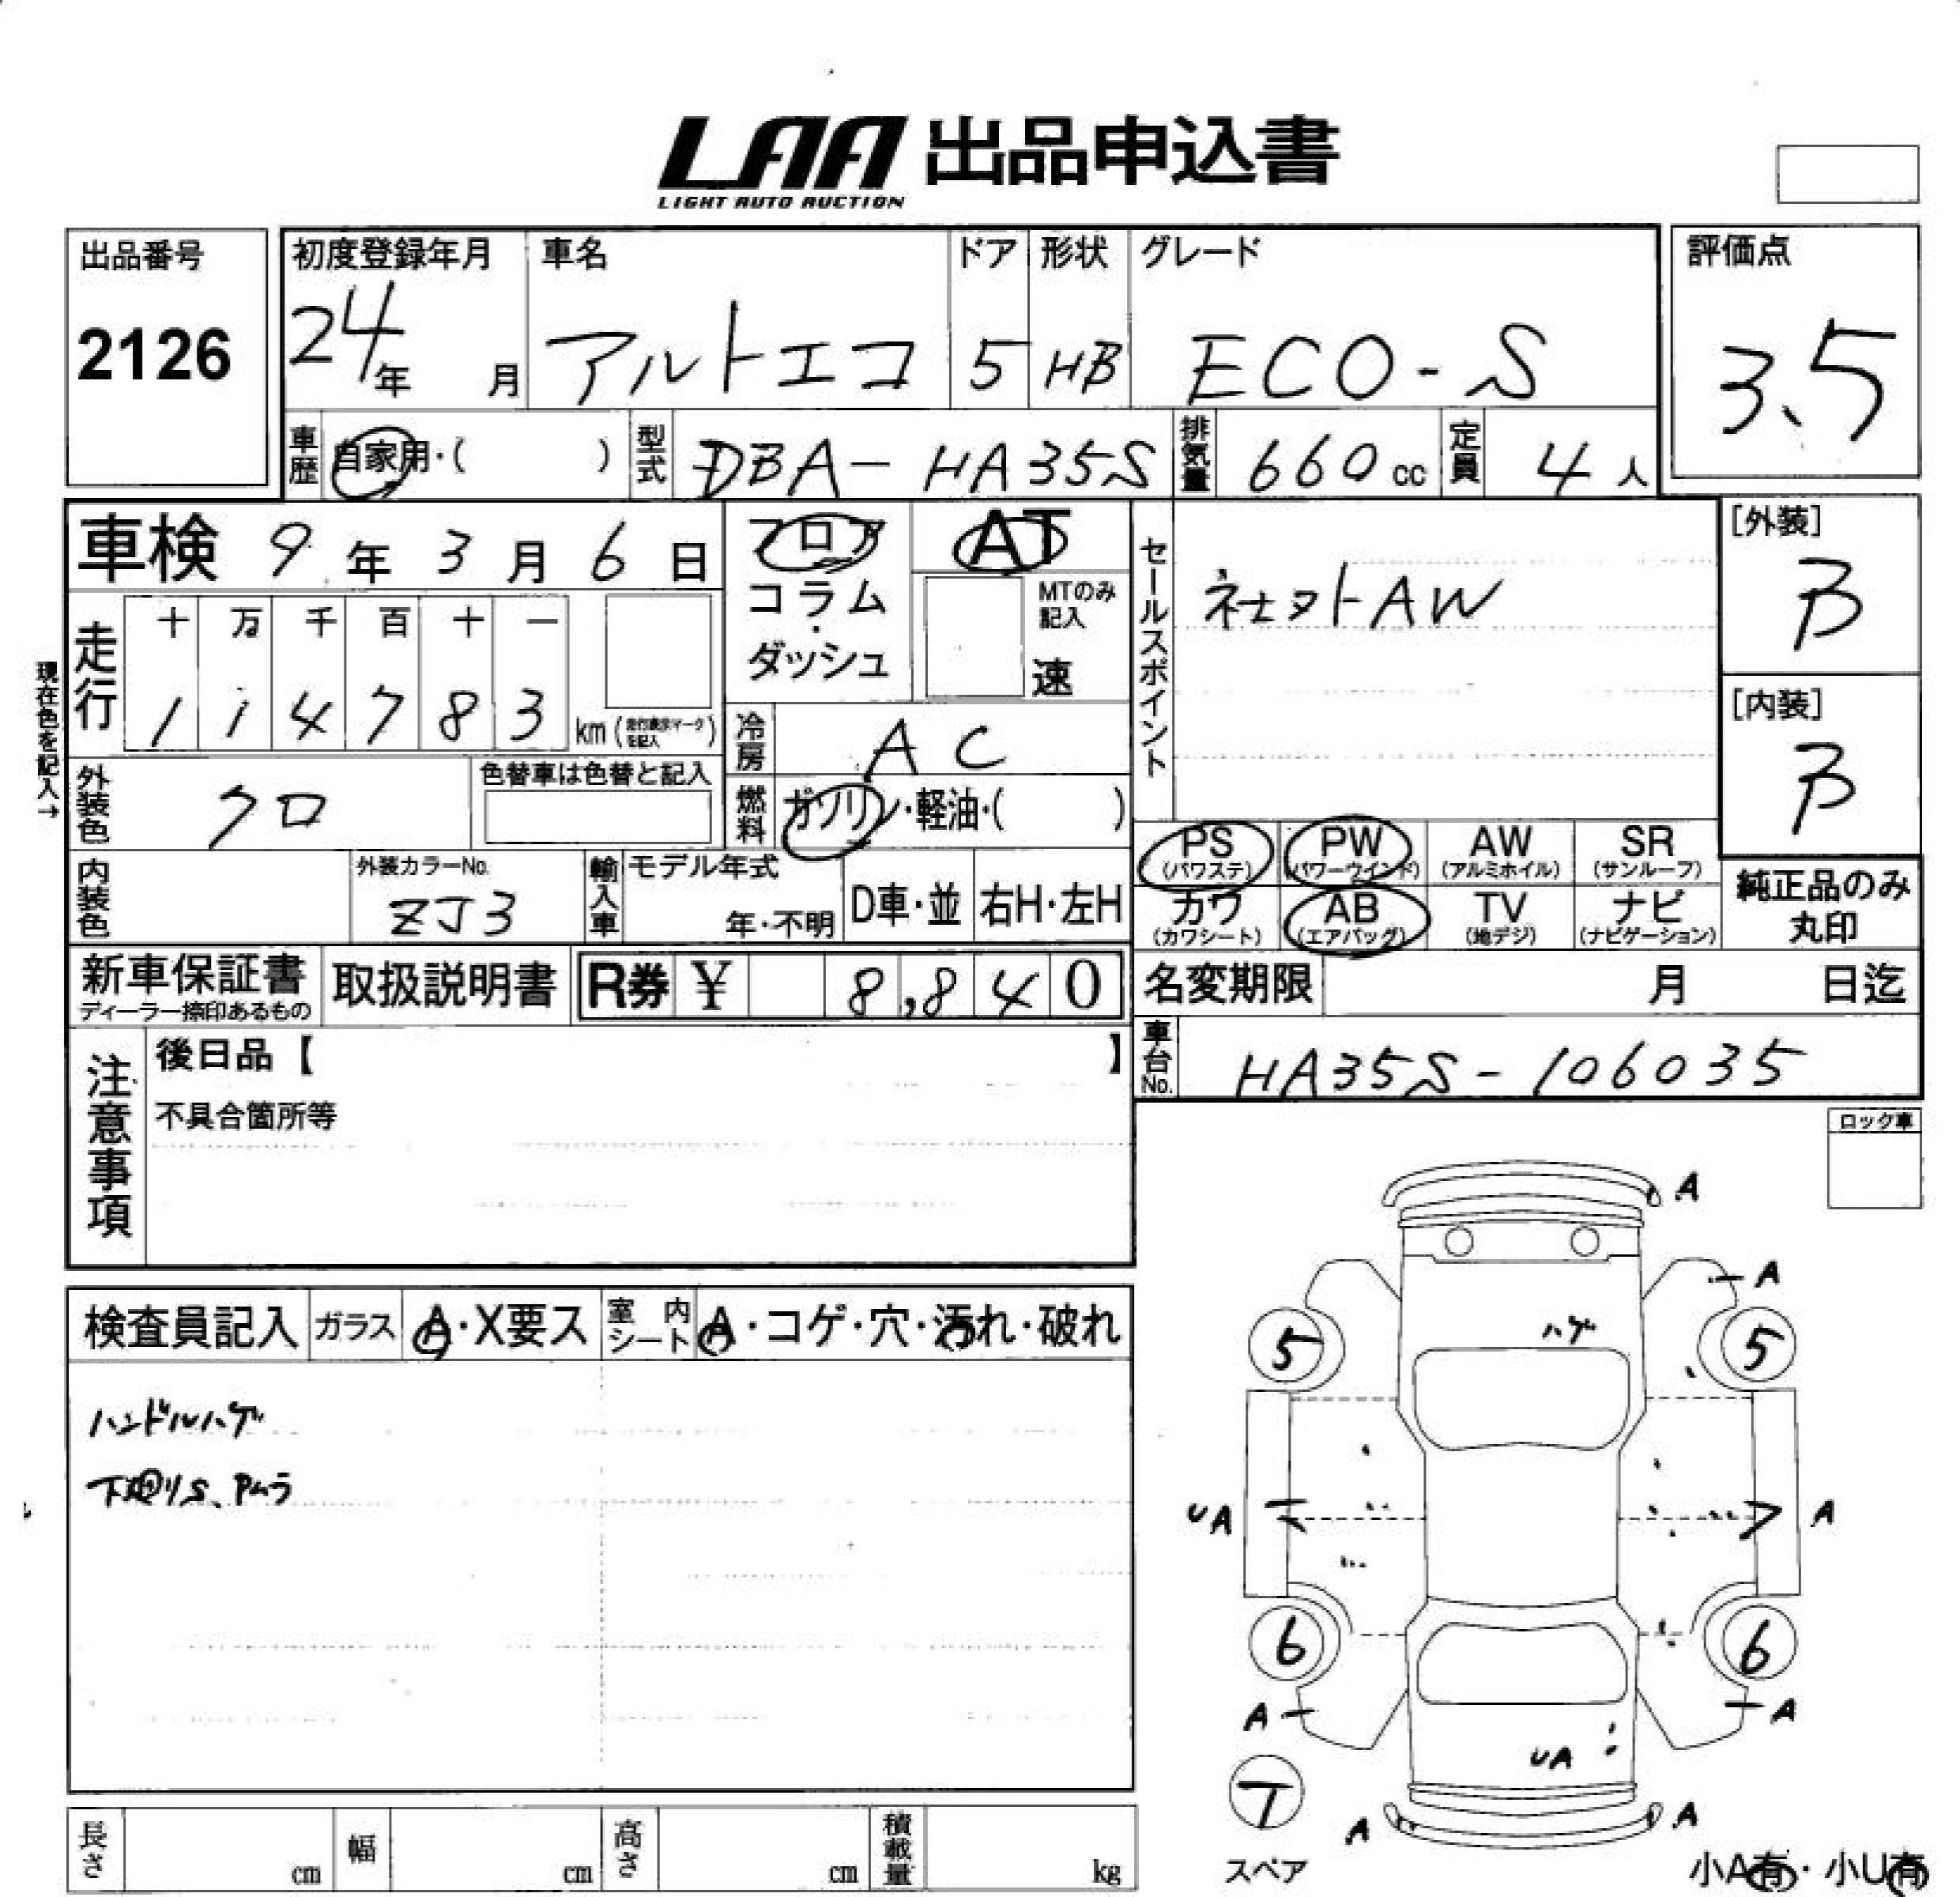 LAA 出品申込書
LIGHT AUTO AUCTION
出品番号
2126
初度登録年月
24年 月
車名
アルトエコ
ドア
5
形状
HB
グレード
ECO-S
評価点
3.5
車歴 自家用・( )
型式 DBA-HA35S
排気量 660cc
定員 4人
車検 9年3月6日
フロア
コラム
・
ダッシュ
AT
MTのみ
記入
速
セールスポイント
社外AW
[外装]
B
[内装]
B
現在色を記入→
走行
十 万 千 百 十 一
1 1 4 7 8 3 km(走行表示マークを記入)
冷房 AC
燃料 ガソリン・軽油・( )
外装色 クロ
色替車は色替と記入
PS
(パワステ)
PW
(パワーウインド)
AW
(アルミホイル)
SR
(サンルーフ)
カワ
(カワシート)
AB
(エアバッグ)
TV
(地デジ)
ナビ
(ナビゲーション)
純正品のみ
丸印
内装色
外装カラーNo.
ZJ3
輸入車
モデル年式
年・不明
D車・並
右H・左H
新車保証書
ディーラー捺印あるもの
取扱説明書
R券 ¥ 8,840
名変期限 月 日迄
車台No. HA35S-106035
注意事項
後日品【 】
不具合箇所等
ロック車
検査員記入
ガラス A・X要ス
室内シート A・コゲ・穴・汚れ・破れ
ハンドルハゲ
下廻りS、Pムラ
A
A
ハゲ
5
5
UA
A
6
6
A
A
UA
T
スペア
A
A
小A有・小U有
長さ cm
幅 cm
高さ cm
積載量 kg